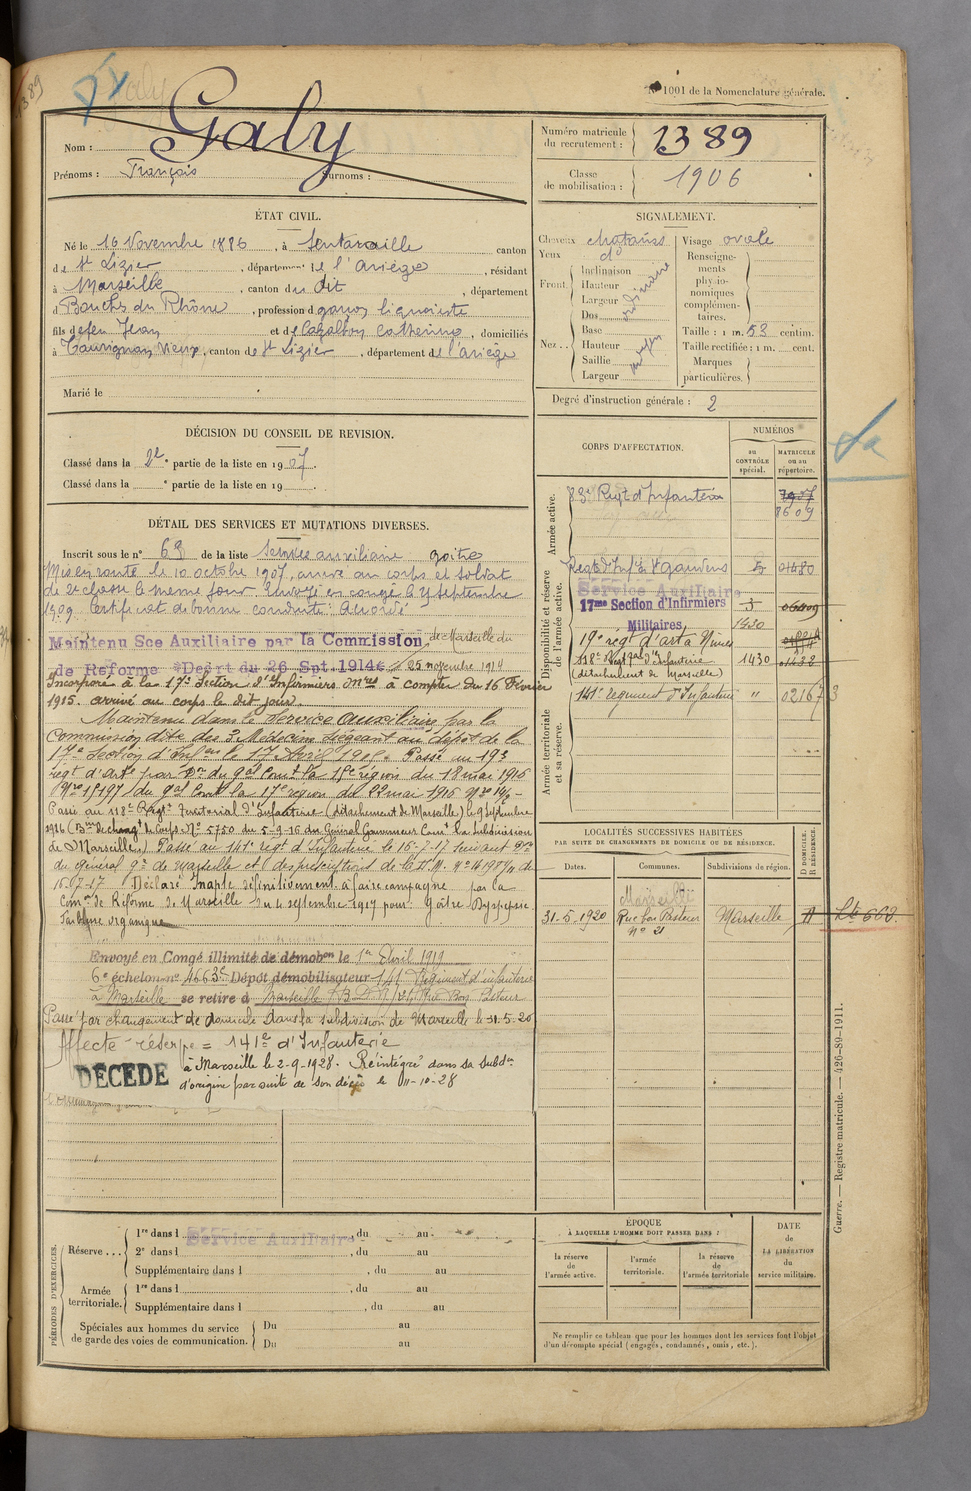 1389
N° 1001 de la Nomenclature générale.
Nom : Galy
Prénoms : François Surnoms :
Numéro matricule du recrutement : 1389
Classe de mobilisation : 1906
ÉTAT CIVIL.
Né le 16 Novembre 1886, à Sentaraille canton
de St Lizier, département de l'Ariège, résidant
à Marseille, canton du dit, département
d Bouches du Rhône, profession d garçon liquoriste
fils de feu Jean et de Cazalbou Catherine, domiciliés
à Taurignan Vieux, canton de St Lizier, département de l'Ariège
Marié le
SIGNALEMENT.
Cheveux chatains
Yeux do
Front. Inclinaison
Hauteur
Largeur
ordinaire
Nez .. Dos
Base
Hauteur
Saillie
Largeur
moyen
Visage ovale
Renseignements physionomiques complémentaires.
Taille : 1 m. 53 centim.
Taille rectifiée : 1 m. cent.
Marques particulières.
Degré d'instruction générale : 2
DÉCISION DU CONSEIL DE REVISION.
Classé dans la 2e partie de la liste en 1907.
Classé dans la e partie de la liste en 19 .
DÉTAIL DES SERVICES ET MUTATIONS DIVERSES.
Inscrit sous le n° 63 de la liste Services auxiliaire goitre
Mis en route le 10 octobre 1907, arrivé au corps et soldat
de 2e classe le même jour. Envoyé en congé le 25 septembre
1909 Certificat de bonne conduite : Accordé
Maintenu Sce Auxiliaire par la Commission de Marseille du
de Réforme Décrt du 26 Spt. 1914 25 novembre 1914
Incorporé à la 17e Section d'Infirmiers Mres à compter du 16 Février
1915. arrivé au corps le dit jour.
Maintenu dans le Service Auxiliaire par la
Commission dite des 3 Médecins siégeant au dépôt de la
17e Section d'Infers le 17 Avril 1915. Passé au 19e
régt d'Artie par On du gal Comt la 15e région du 18 mai 1916
du gal Comt la 17e région du 22 mai 1916
Passé au 118e Régt Territorial d'Infanterie (détachement de Marseille) le 9 Septembre
1916 (Bin de changt de Corps No 5750 du 5-9-16 du Général Gouverneur Comt la subdivision
de Marseille.) Passé au 141e régt d'Infanterie le 16-7-17 suivant On
du général gr de Marseille et (des prescriptions de la D.M.
16-7-17 Déclaré Inapte définitivement à faire campagne par la
Comon de Réforme de Marseille du 4 septembre 1917 pour : Goitre Dyspepsie
Faiblesse organique
Envoyé en Congé illimité de démobon le 1er Avril 1919
6e échelon no 4663e Dépôt démobilisateur 141 Régiment d'infanterie
à Marseille se retire à Marseille Rue Bon Pasteur
Passé par changement de domicile dans la subdivision de Marseille le 31-5-20
Affecté réserve = 141e d'Infanterie
DÉCÉDÉ à Marseille le 2-9-1928. Réintégré dans sa subdon
d'origine par suite de son décès le 11-10-28
CORPS D'AFFECTATION.
NUMÉROS
au CONTRÔLE spécial.
MATRICULE ou au répertoire.
Armée active.
83e Régt d'Infanterie 7907
8609
Disponibilité et réserve de l'armée active.
Regt d'Infie St Gaudens 01480
Service Auxiliaire
17me Section d'Infirmiers Militaires
1430
19e régt d'art à Nimes
118e Regt gal d'Infanterie 1430
(détachement de Marseille)
Armée territoriale et sa réserve.
141e régiment d'Infanterie " 02167 3
LOCALITÉS SUCCESSIVES HABITÉES
PAR SUITE DE CHANGEMENTS DE DOMICILE OU DE RÉSIDENCE.
Dates. Communes. Subdivisions de région. D DOMICILE. R RÉSIDENCE.
Marseille
31-5-1920 Rue bon Pasteur Marseille D
No 21
PÉRIODES D'EXERCICES.
Réserve ... 1re dans l Service Auxiliaire, du au
2e dans l , du au
Supplémentaire dans l , du au
Armée territoriale. 1re dans l , du au
Supplémentaire dans l , du au
Spéciales aux hommes du service de garde des voies de communication. Du au
Du au
ÉPOQUE
À LAQUELLE L'HOMME DOIT PASSER DANS :
la réserve de l'armée active.
l'armée territoriale.
la réserve de l'armée territoriale
DATE de LA LIBÉRATION du service militaire.
Ne remplir ce tableau que pour les hommes dont les services font l'objet
d'un décompte spécial (engagés, condamnés, omis, etc.).
Guerre. — Registre matricule. — 426-89-1911.